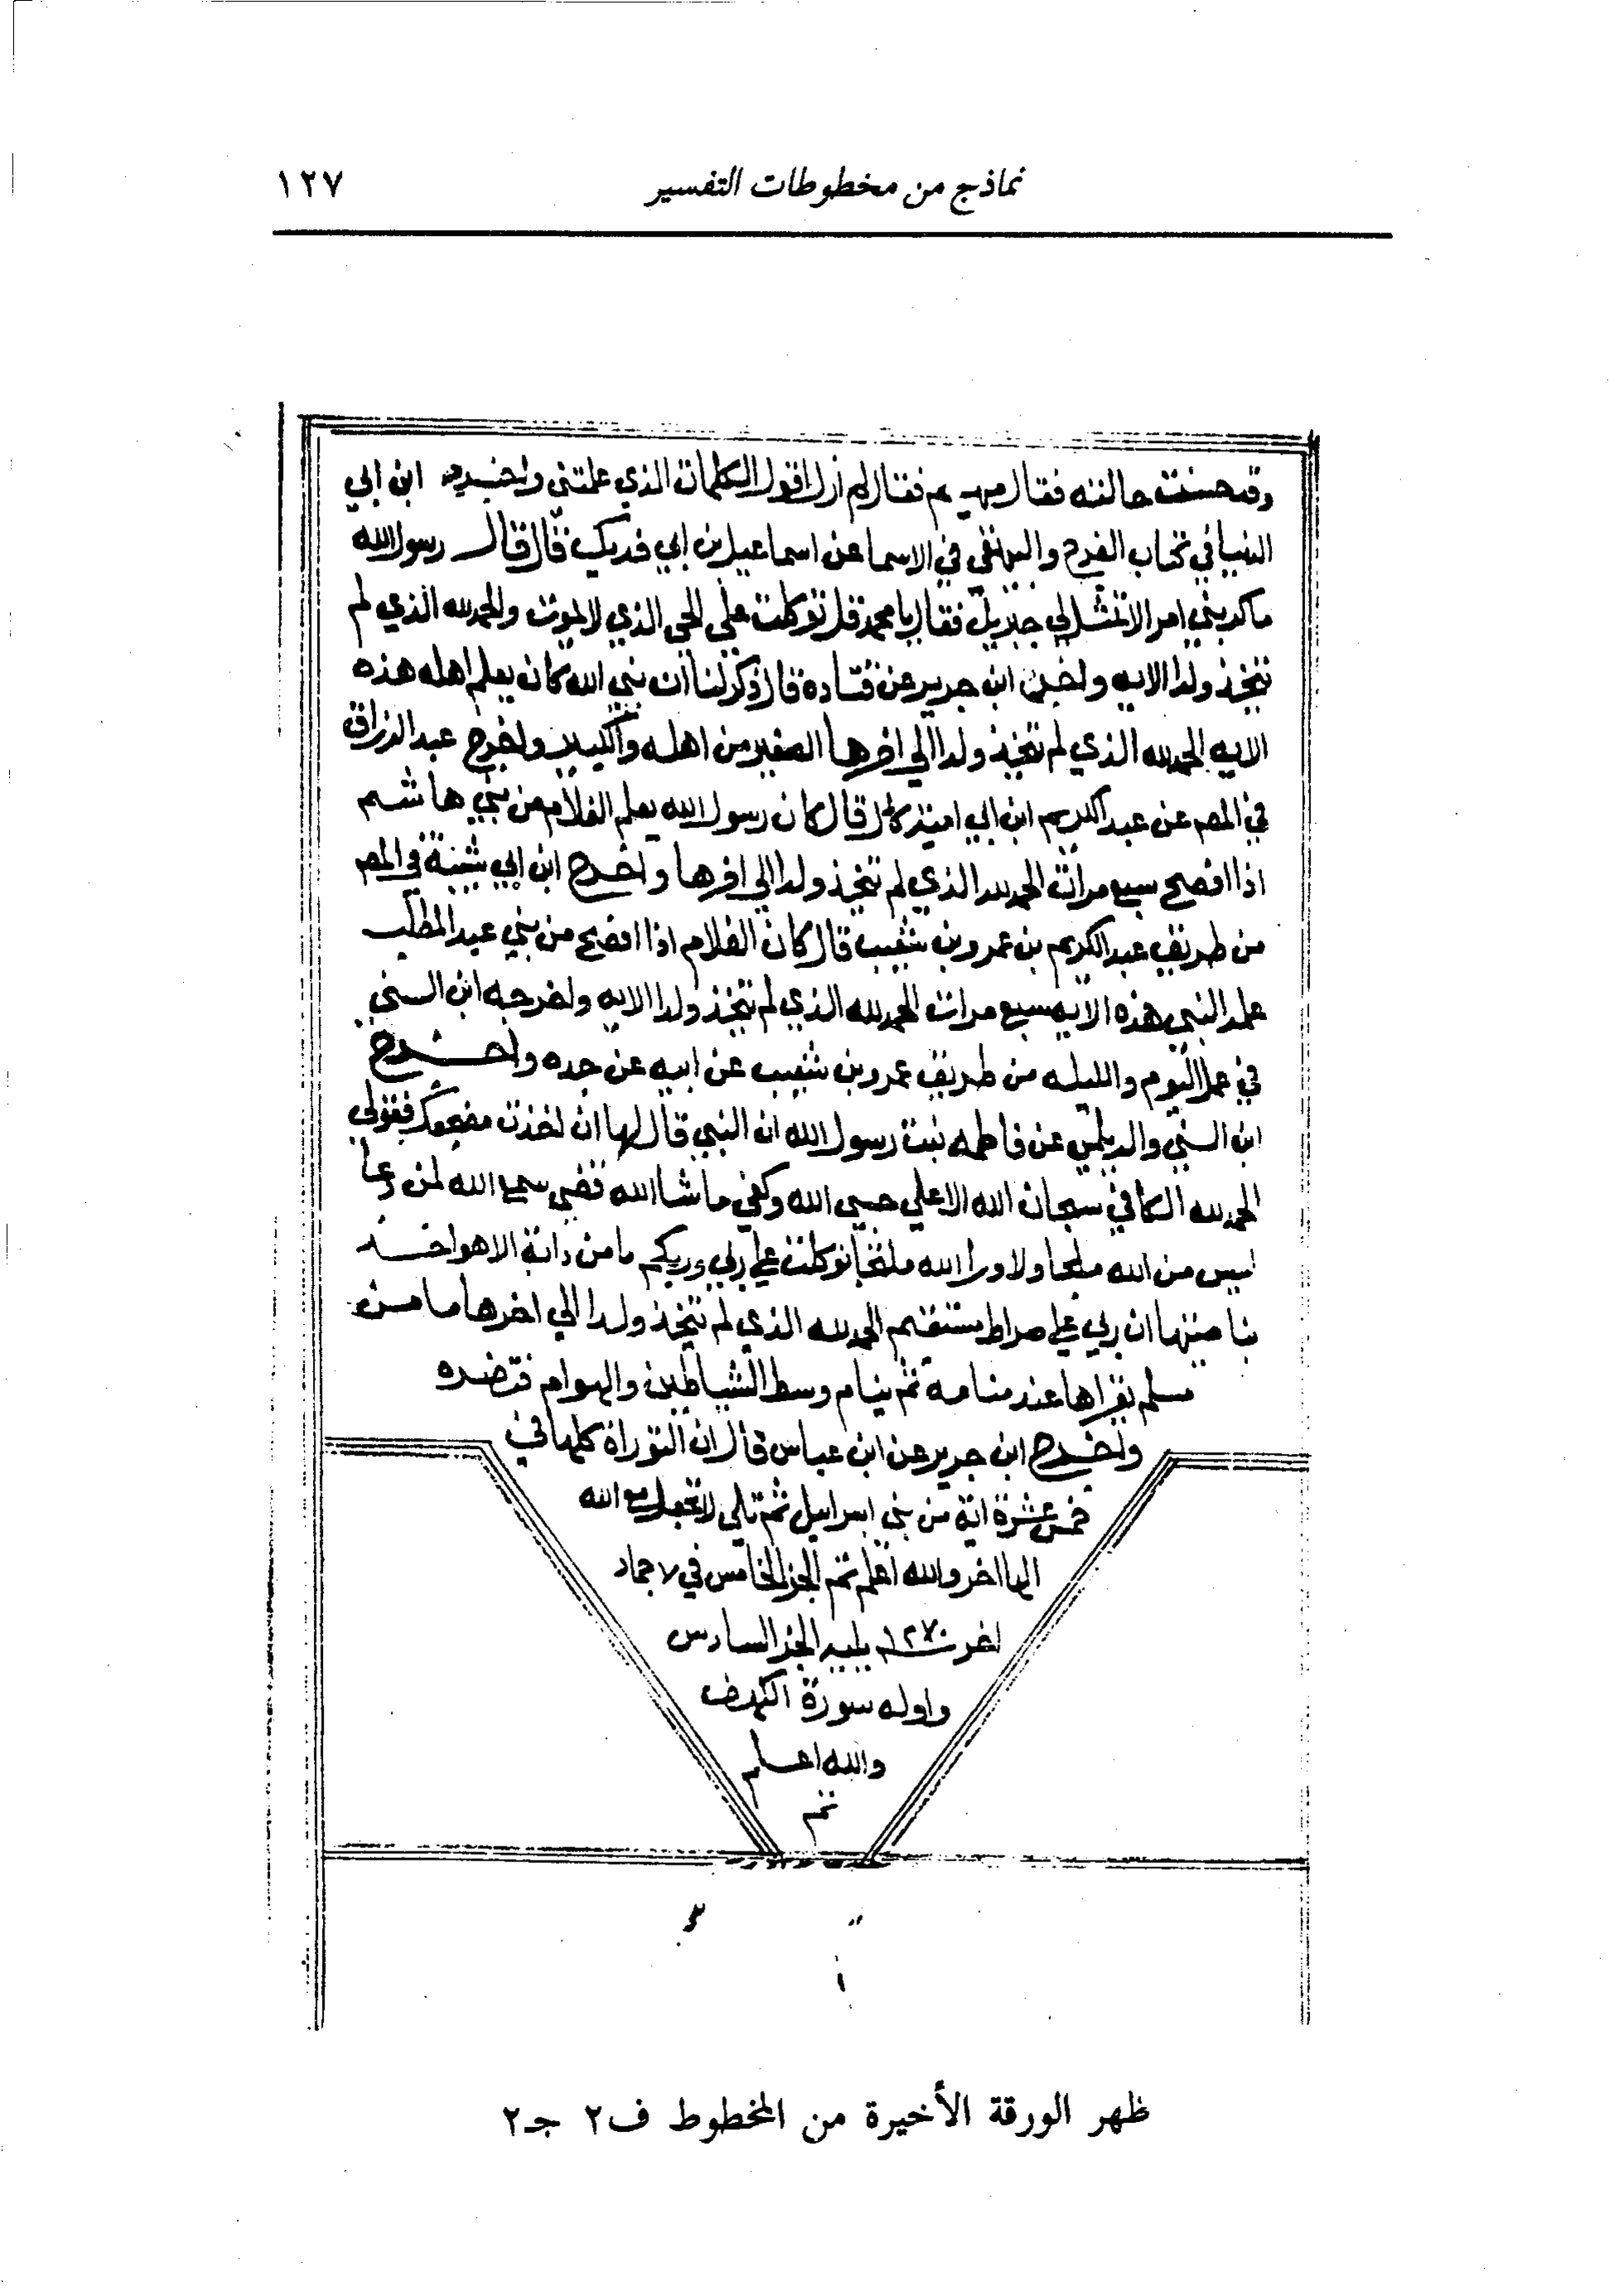 نماذج من مخطوطات التفسير ١٢٧
وقد حسنت حالته فقال مهيم فقال لم ازل اقول الكلمات الذي علمتني واخرج ابن ابي
الدنيا في كتاب الفرج والبيهقي في الاسما عن اسماعيل بن ابي فديك قال قال رسول الله
ما كربني امر الا تمثل لي جبريل فقال يا محمد قل توكلت علي الحي الذي لا يموت والحمد لله الذي لم
يتخذ ولدا الايه واخرج ابن جرير عن قتادة قال ذكر لنا ان نبي الله كان يعلم اهله هذه
الايه الحمد لله الذي لم يتخذ ولدا الي اخرها الصغير من اهله والكبير واخرج عبد الرزاق
في المص عن عبد الكريم ابن ابي امية قال كان رسول الله يعلم الغلام من بني هاشم
اذا افصح سبع مرات الحمد لله الذي لم يتخذ ولدا الي اخرها واخرج ابن ابي شيبة في المص
من طريق عبد الكريم بن عمرو بن شعيب قال كان الغلام اذا افصح من بني عبد المطلب
علمه النبي هذه الآيه سبع مرات الحمد لله الذي لم يتخذ ولدا الايه واخرجه ابن السني
في عمل اليوم والليله من طريق عمرو بن شعيب عن ابيه عن جده واخرج
ابن السني والديلمي عن فاطمه بنت رسول الله ان النبي قال لها ان اخذت مضجعك فقولي
الحمد لله الكافي سبحان الله الاعلي حسبي الله وكفي ما شا الله قضي سمع الله لمن دعا
ليس من الله ملجا ولا ورا الله ملتجا توكلت علي ربي وربكم ما من دابة الا هو اخذ
بناصيتها ان ربي علي صراط مستقيم الحمد لله الذي لم يتخذ ولدا الي اخرها ما من
مسلم يقراها عند منامه ثم ينام وسط الشياطين والهوام فتضره
واخرج ابن جرير عن ابن عباس قال ان التوراة كلها في
خمس عشرة اية من بني اسرايل ثم تلي لا تجعل مع الله
الها اخر والله اعلم تم الجز الخامس في ٧ جماد
اخر سنة ١٢٧٠ يليه الجز السادس
واوله سورة الكهف
والله اعلم
تم
ظهر الورقة الأخيرة من المخطوط ف٢ جـ٢